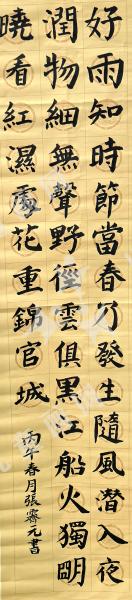 好雨知時節當春乃發生隨風潛入夜
潤物細無聲野徑雲俱黑江船火獨明
曉看紅濕處花重錦官城
丙午春月張寗元書